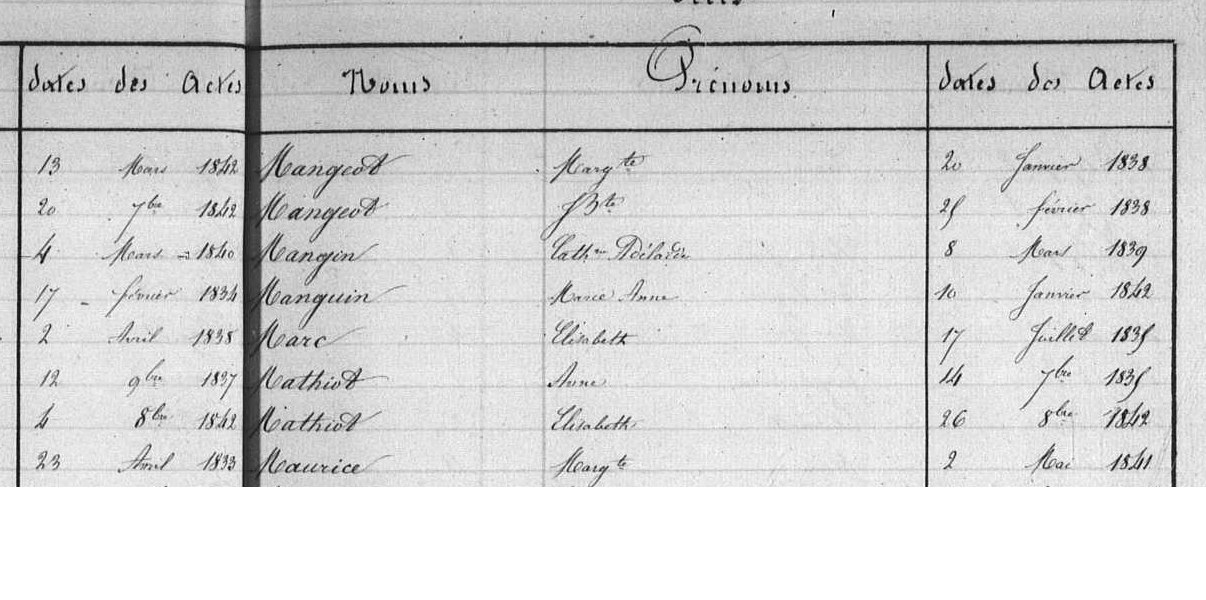 dates des Actes Noms Prénoms dates des Actes
13 Mars 1842 Mangeot Margte 20 Janvier 1838
20 7bre 1842 Mangeot JBte 25 février 1838
4 Mars 1840 Mangin Cathne Adélaïde 8 Mars 1839
17 février 1834 Manguin Marie Anne 10 Janvier 1842
2 Avril 1838 Marc Elisabeth 17 Juillet 1835
12 9bre 1837 Mathiot Anne 14 7bre 1835
4 8bre 1842 Mathiot Elisabeth 26 8bre 1842
23 Avril 1833 Maurice Margte 2 Mai 1841